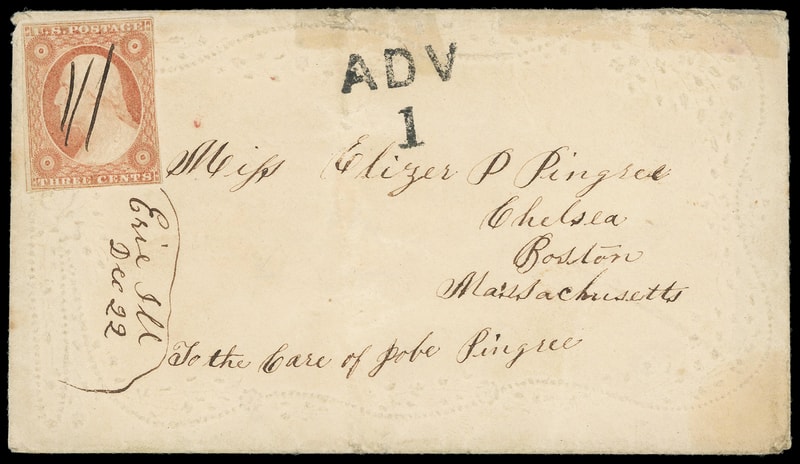 U.S. POSTAGE
THREE CENTS
ADV
1
Miss Elizer P Pingree
Chelsea
Boston
Massachusetts
To the Care of Jobe Pingree
Erie Ill
Dec 22